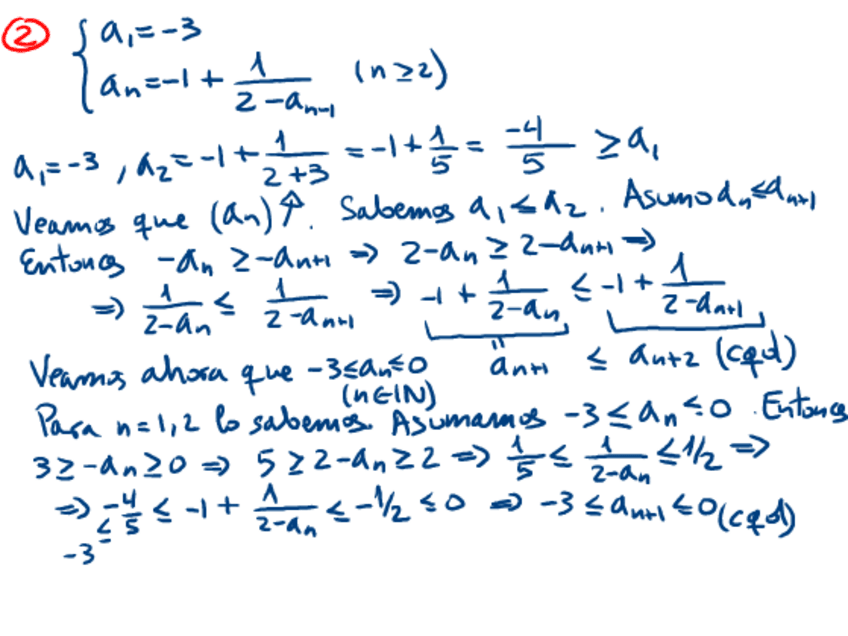 ② { a₁ = -3
aₙ = -1 + 1/(2 - aₙ₋₁) (n ≥ 2)
a₁ = -3, a₂ = -1 + 1/(2+3) = -1 + 1/5 = -4/5 ≥ a₁
Veamos que (aₙ) ↑. Sabemos a₁ ≤ a₂. Asumo aₙ ≤ aₙ₊₁
Entonces -aₙ ≥ -aₙ₊₁ ⇒ 2-aₙ ≥ 2-aₙ₊₁ ⇒
⇒ 1/(2-aₙ) ≤ 1/(2-aₙ₊₁) ⇒ -1 + 1/(2-aₙ) ≤ -1 + 1/(2-aₙ₊₁)
"
aₙ₊₁ ≤ aₙ₊₂ (cqd)
Veamos ahora que -3 ≤ aₙ ≤ 0
(n∈ℕ)
Para n=1,2 lo sabemos. Asumamos -3 ≤ aₙ ≤ 0. Entonces
3 ≥ -aₙ ≥ 0 ⇒ 5 ≥ 2-aₙ ≥ 2 ⇒ 1/5 ≤ 1/(2-aₙ) ≤ 1/2 ⇒
⇒ -4/5 ≤ -1 + 1/(2-aₙ) ≤ -1/2 ≤ 0 ⇒ -3 ≤ aₙ₊₁ ≤ 0 (cqd)
≤
-3